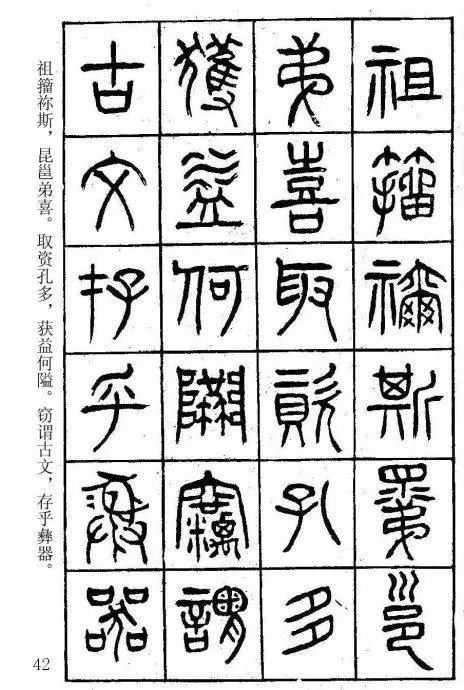 祖籀祢斯，昆邕弟喜。取资孔多，获益何隘。窃谓古文，存乎彝器。
祖籀禰斯䍌邕
弟喜取資孔多
獲益何隘竊謂
古文存乎彝器
42